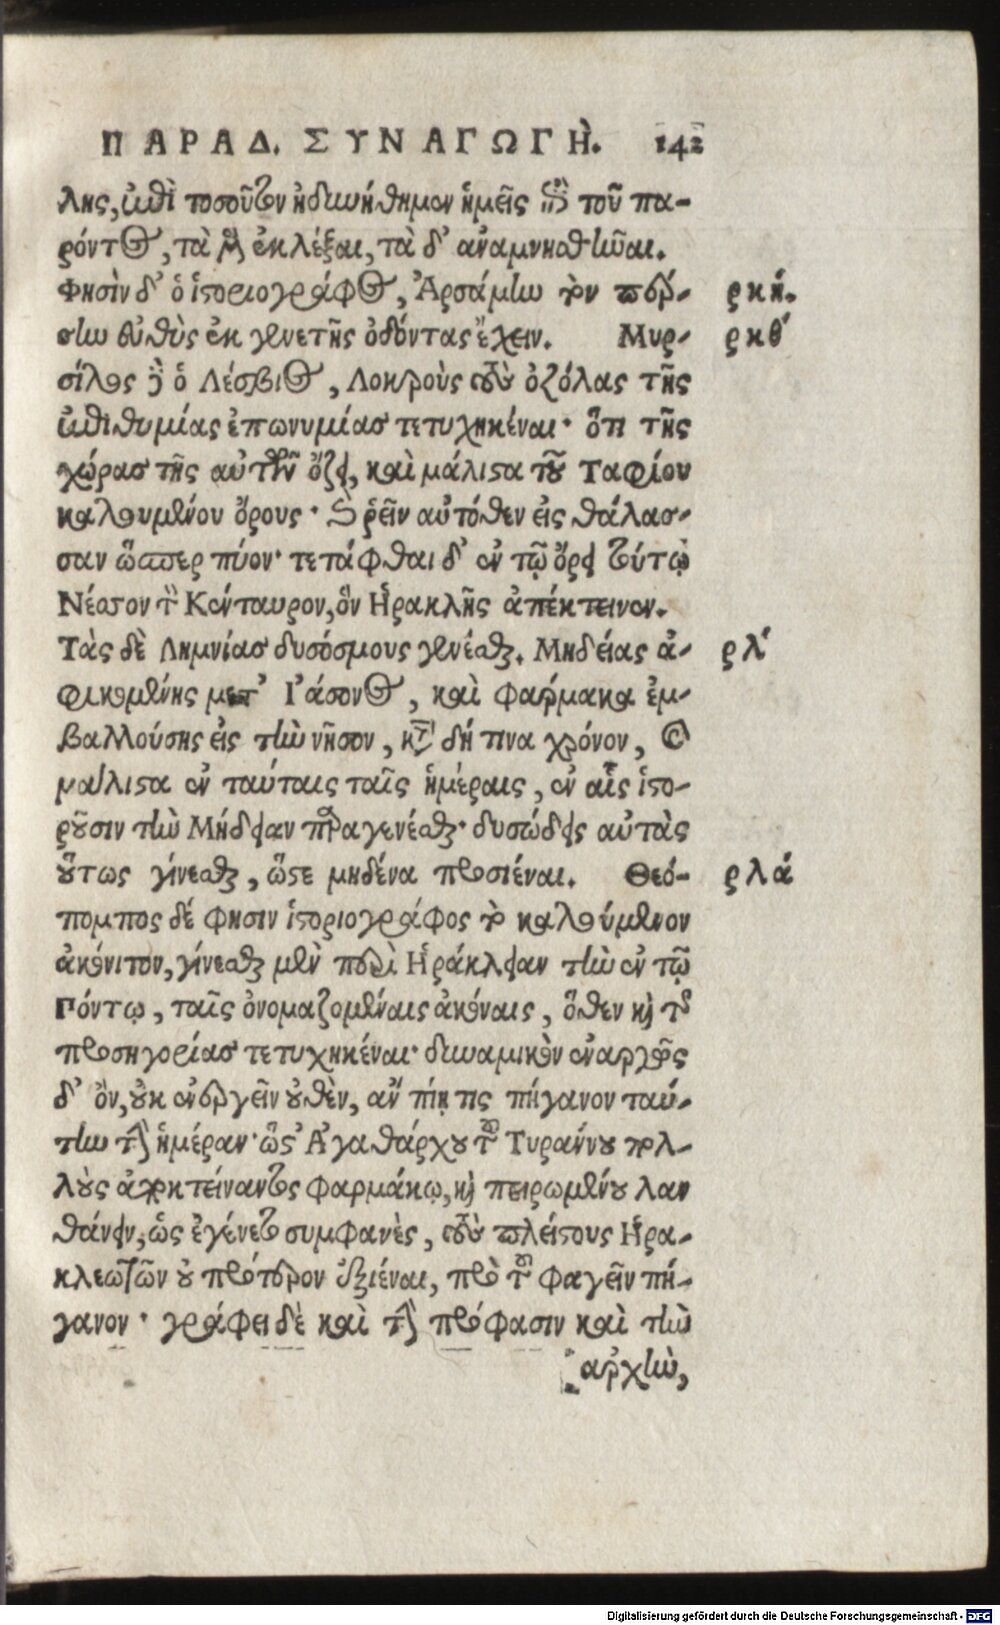 ΠΑΡΑΔ. ΣΥΝΑΓΩΓῊ. 142
λης, ἐπὶ τοσοῦτον ἠδιωήθημεν ἡμεῖς ἐπὶ τοῦ πα-
ρόντος, τὰ μὲν ἐκλέξαι, τὰ δ' ἀναμνησθῆναι.
Φησὶν δ' ὁ ἱστοριογράφος, Ἀρσάμην τὸν πέρ- ρκή.
σην εὐθὺς ἐκ γενετῆς ὀδόντας ἔχειν. Μυρ- ρκθ'
σίλος δὲ ὁ Λέσβιος, Λοκροὺς τοὺς ὀζόλας τῆς
ἐπιθυμίας ἐπωνυμίας τετυχηκέναι· ὅτι τῆς
χώρας τῆς αὐτῶν ὄζει, καὶ μάλιστα τοῦ Ταφίου
καλουμένου ὄρους· καὶ ῥεῖν αὐτόθεν εἰς θάλασ-
σαν ὥσπερ πύον· τετάφθαι δ' ἐν τῷ ὄρει τούτῳ
Νέσσον τὸν Κένταυρον, ὃν Ἡρακλῆς ἀπέκτεινεν.
Τὰς δὲ Λημνίας δυσόσμους γενέσθαι. Μηδείας ἀ- ρλ'
φικομένης μετ' Ἰάσονος, καὶ φάρμακα ἐμ-
βαλλούσης εἰς τὴν νῆσον, κατὰ δή τινα χρόνον, καὶ
μάλιστα ἐν ταύταις ταῖς ἡμέραις, ἐν αἷς ἱστο-
ροῦσιν τὴν Μήδειαν παραγενέσθαι· δυσώδεις αὐτὰς
οὕτως γίνεσθαι, ὥστε μηδένα προσιέναι. Θεό- ρλά
πομπος δέ φησιν ἱστοριογράφος τὸ καλούμενον
ἀκόνιτον, γίνεσθαι μὲν περὶ Ἡράκλειαν τὴν ἐν τῷ
Πόντῳ, ταῖς ὀνομαζομέναις ἀκόναις, ὅθεν καὶ τῆς
προσηγορίας τετυχηκέναι· δυναμικὸν ἐναργῶς
δ' ὂν, οὐκ ἐνεργεῖν οὐθὲν, ἂν πίῃ τις πήγανον ταύ-
την τὴν ἡμέραν· ὥς Ἀγαθάρχου τοῦ Τυράννου πολ-
λοὺς ἀποκτείναντος φαρμάκῳ, καὶ πειρωμένου λαν
θάνειν, ὡς ἐγένετο συμφανὲς, τοὺς πλείστους Ἡρα-
κλεωτῶν οὐ πρότερον ἐξιέναι, πρὸ τοῦ φαγεῖν πή-
γανον· γράφει δὲ καὶ τὴν πρόφασιν καὶ τὴν
ἀρχὴν,
Digitalisierung gefördert durch die Deutsche Forschungsgemeinschaft - DFG